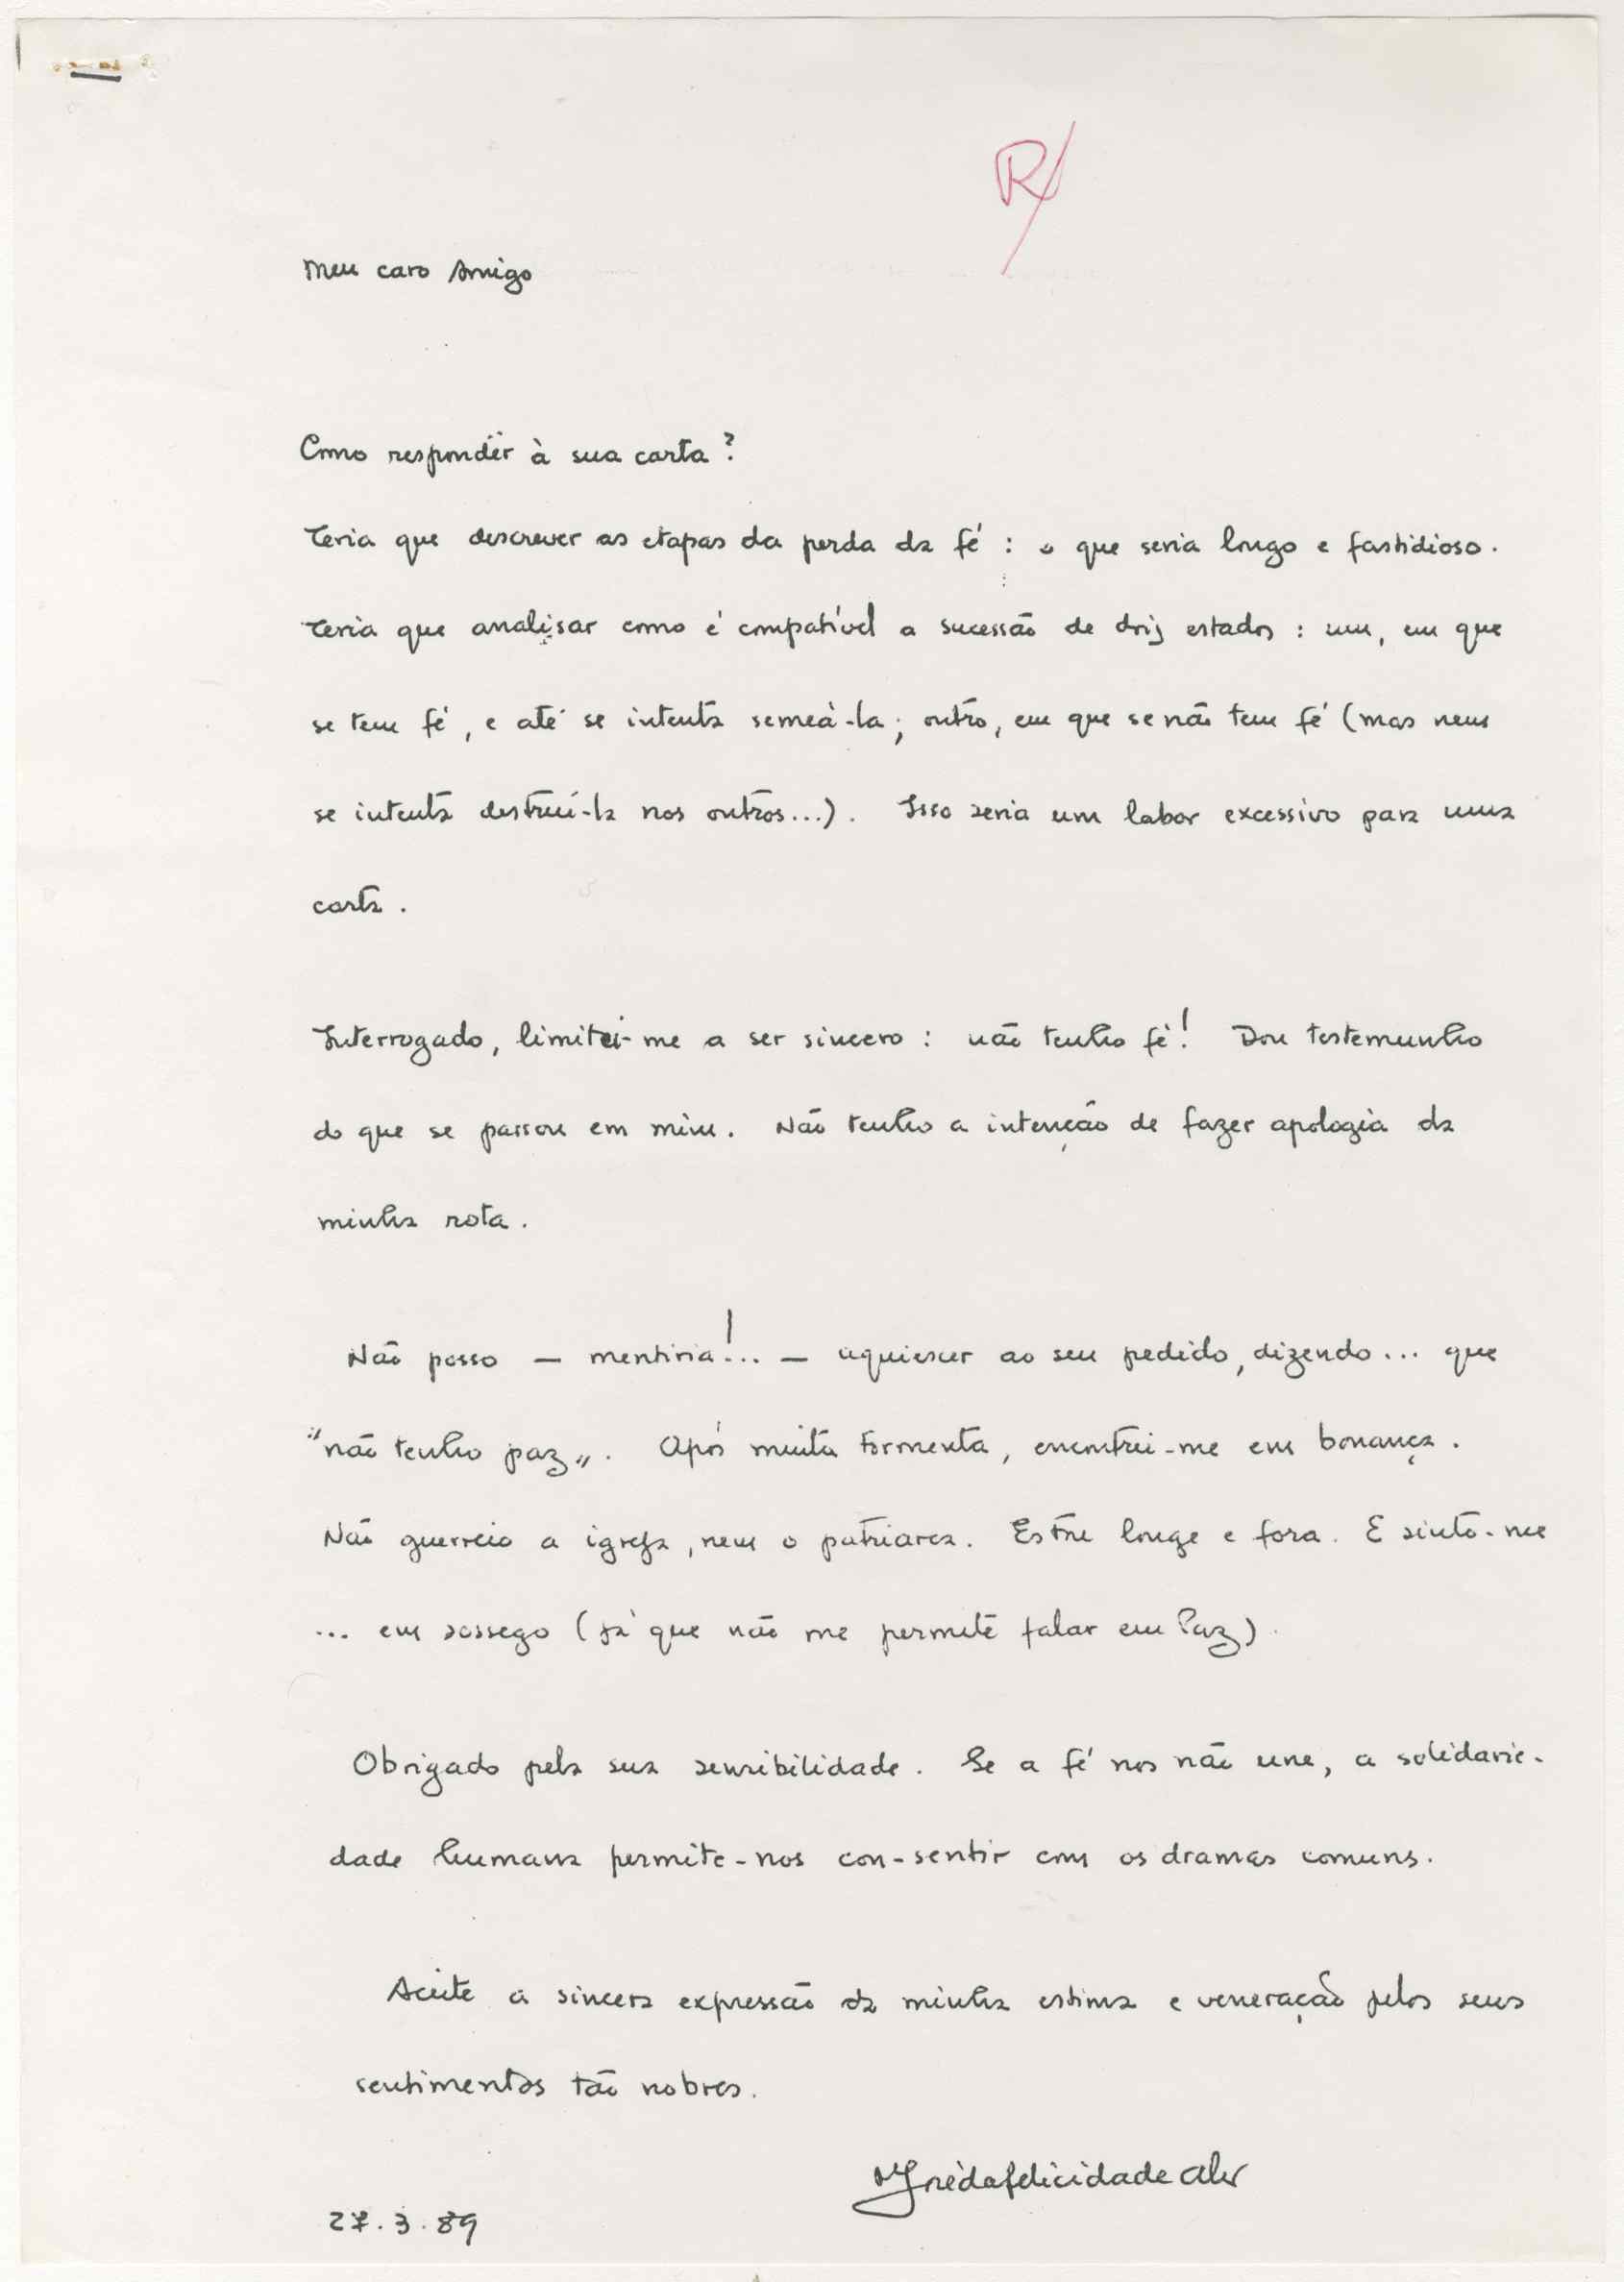 R/
Meu caro Amigo
Como responder à sua carta?
Teria que descrever as etapas da perda da fé : o que seria longo e fastidioso.
Teria que analisar como é compatível a sucessão de dois estados : um, em que
se tem fé, e até se intenta semeá-la; outro, em que se não tem fé (mas nem
se intenta destruí-la nos outros...). Isso seria um labor excessivo para uma
carta.
Interrogado, limitei-me a ser sincero : não tenho fé! Dou testemunho
do que se passou em mim. Não tenho a intenção de fazer apologia da
minha rota.
Não posso — mentiria!... — aquiescer ao seu pedido, dizendo... que
"não tenho paz". Após muita tormenta, encontrei-me em bonança.
Não guerreio a igreja, nem o patriarca. Estou longe e fora. E sinto-me
... em sossego (já que não me permite falar em Paz).
Obrigado pela sua sensibilidade. Se a fé nos não une, a solidarie-
dade humana permite-nos con-sentir com os dramas comuns.
Aceite a sincera expressão da minha estima e veneração pelos seus
sentimentos tão nobres.
dafelicidade
27.3.89